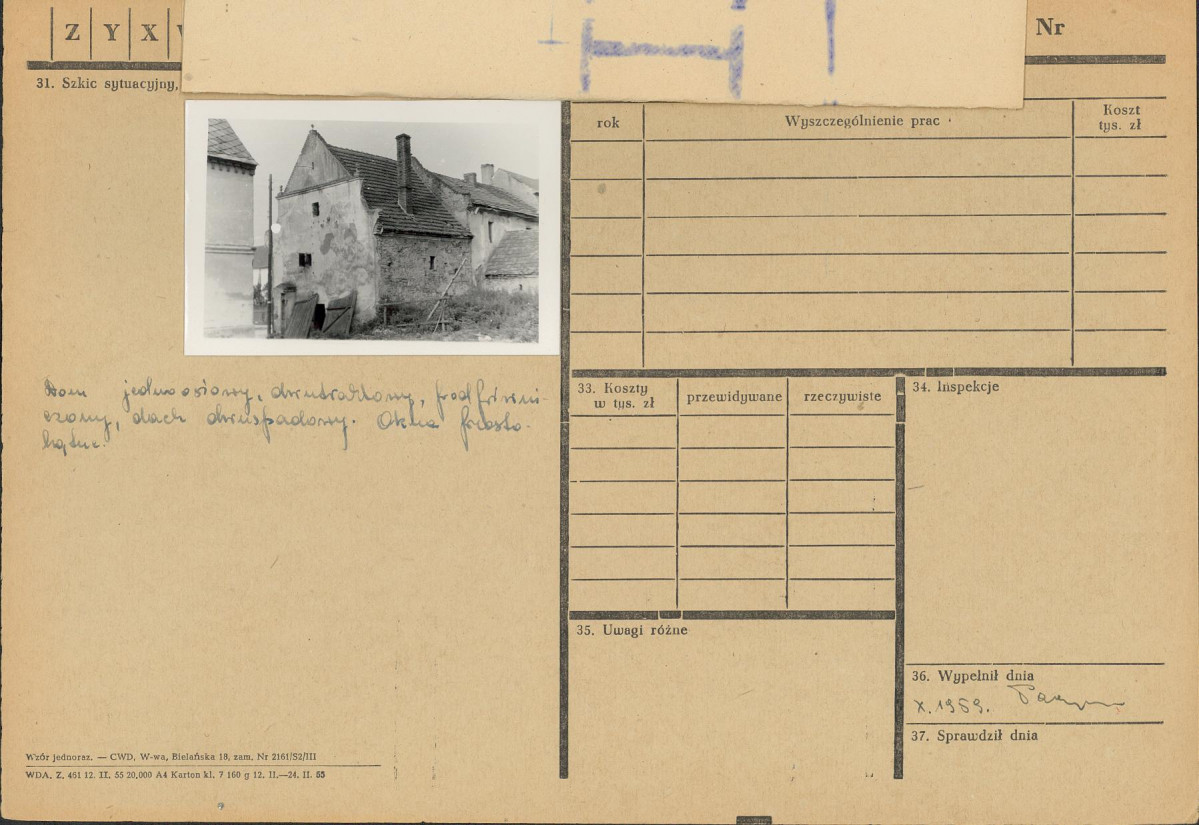 Z Y X
Nr
31. Szkic sytuacyjny,
rok Wyszczególnienie prac Koszt tys. zł
Dom jednoosiowy, dwutraktowy, podpiwni-
czony, dach dwuspadowy. Okna prosto-
kątne.
33. Koszty w tys. zł przewidywane rzeczywiste
34. Inspekcje
35. Uwagi różne
36. Wypełnił dnia
X. 1959.
37. Sprawdził dnia
Wzór jednoraz. — CWD, W-wa, Bielańska 18, zam. Nr 2161/S2/III
WDA. Z. 461 12. II. 55 20.000 A4 Karton kl. 7 160 g 12. II.—24. II. 55